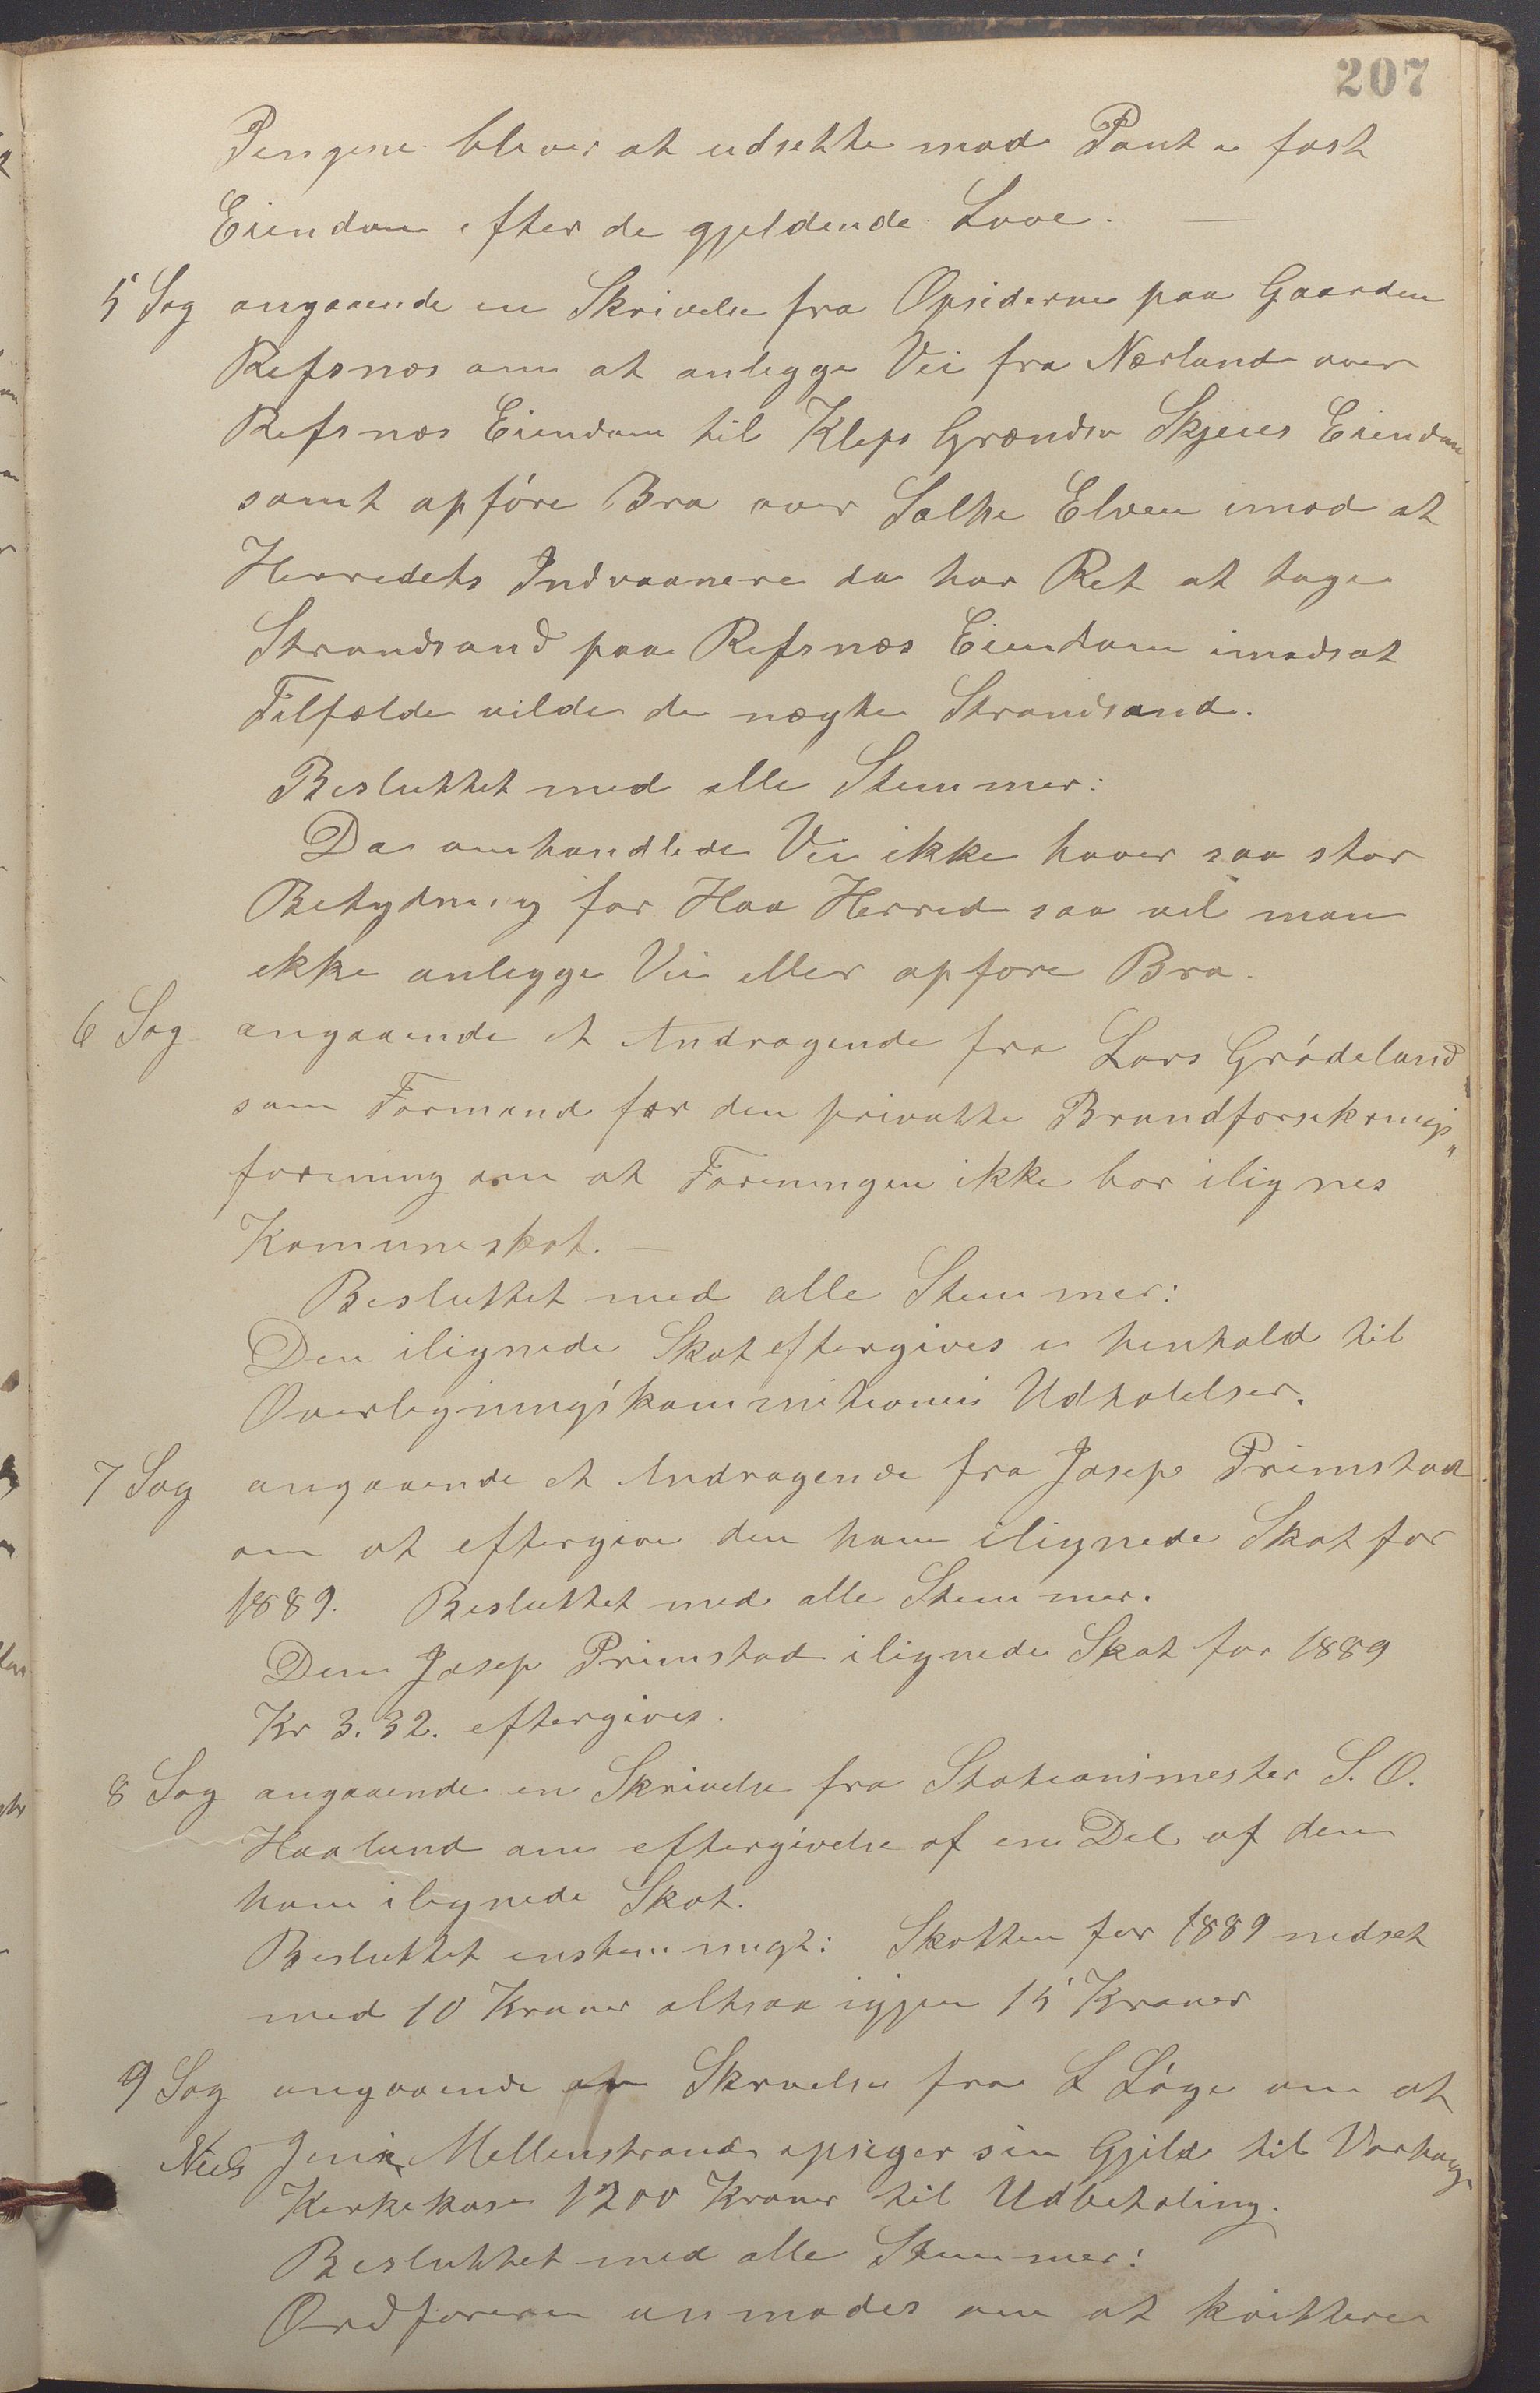 207
Pengene bliver at udsette mod Pant i fast
Eiendom efter de gjeldende Love. —
5 Sag angaaende en Skrivelse fra Opsiderne paa Gaarden
Refsnes om at anlegge Vei fra Nærland over
Refsnes Eiendom til Kleps Grændse Skjeies Eiendom
samt opföre Bro over Salte Elven imod at
Herredets Indvaanere da har Ret at tage
Strandsand paa Refsnæs Eiendom imodsat
Tilfælde vilde de nægte Strandsand.
Besluttet med alle Stemmer:
Da omhandlede Vei ikke haver saa stor
Betydning for Haa Herred saa vil man
ikke anlegge Vei eller opfore Bro.
6 Sag angaaende et Andragende fra Lars Grödeland
som Formand for den privatte Brandforsikrings"
forening om at Foreningen ikke bor ilignes
Komuneskat. —
Besluttet med alle Stemmer:
Den ilignede Skat eftergives i henhold til
Overligningskommitionens Udtalelser.
7 Sag angaaende et Andragende fra Josep Primstad
om at eftergive den ham ilignede Skat for
1889. Besluttet med alle Stemmer.
Den Josep Primstad ilignede Skat for 1889
Kr 3.32. eftergives.
8 Sag angaaende en Skrivelse fra Stationsmester S. O.
Haaland om eftergivelse af en Del af den
ham ilignede Skat.
Besluttet enstemmigt: Skatten for 1889 nedset
med 10 Kroner altsaa igjen 15 Kroner
9 Sag angaaende en Skrivelse fra L Löge om at
Niels Jensen Mellenstrand opsiger sin Gjeld til Varhaug
Kirkekase 1200 Kroner til Udbetaling.
Besluttet med alle Stemmer:
Ordforeren anmodes om at kvittere